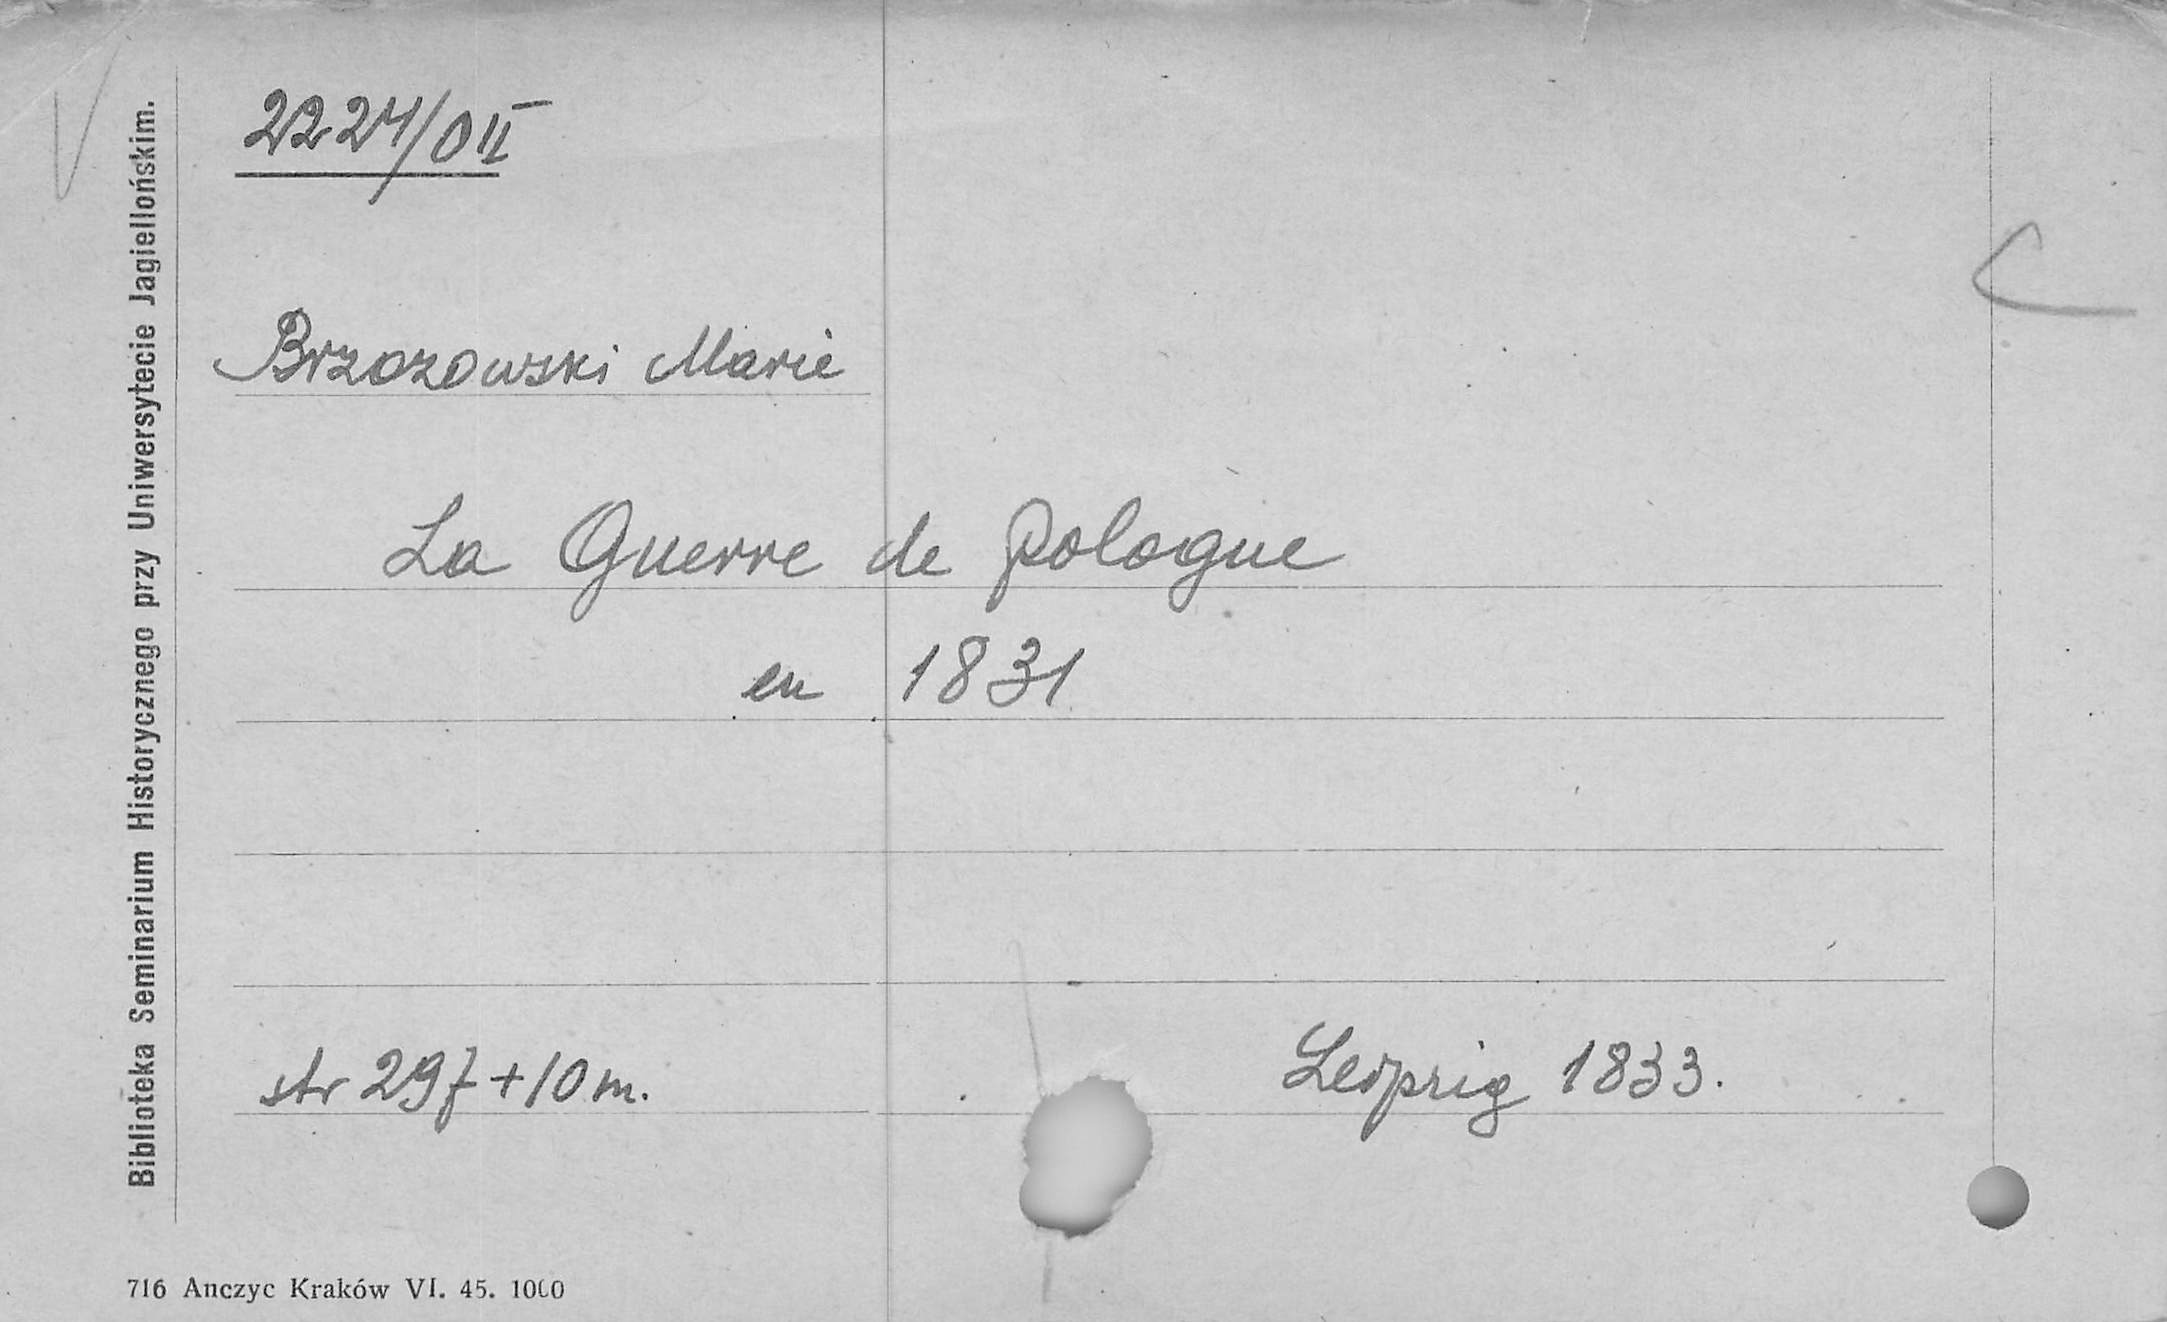 2224/OII
Biblioteka Seminarium Historycznego przy Uniwersytecie Jagiellońskim.
Brzozowski Marie
La Guerre de Pologne
en 1831
str 297+10 m.
Leipzig 1833.
716 Anczyc Kraków VI. 45. 1000